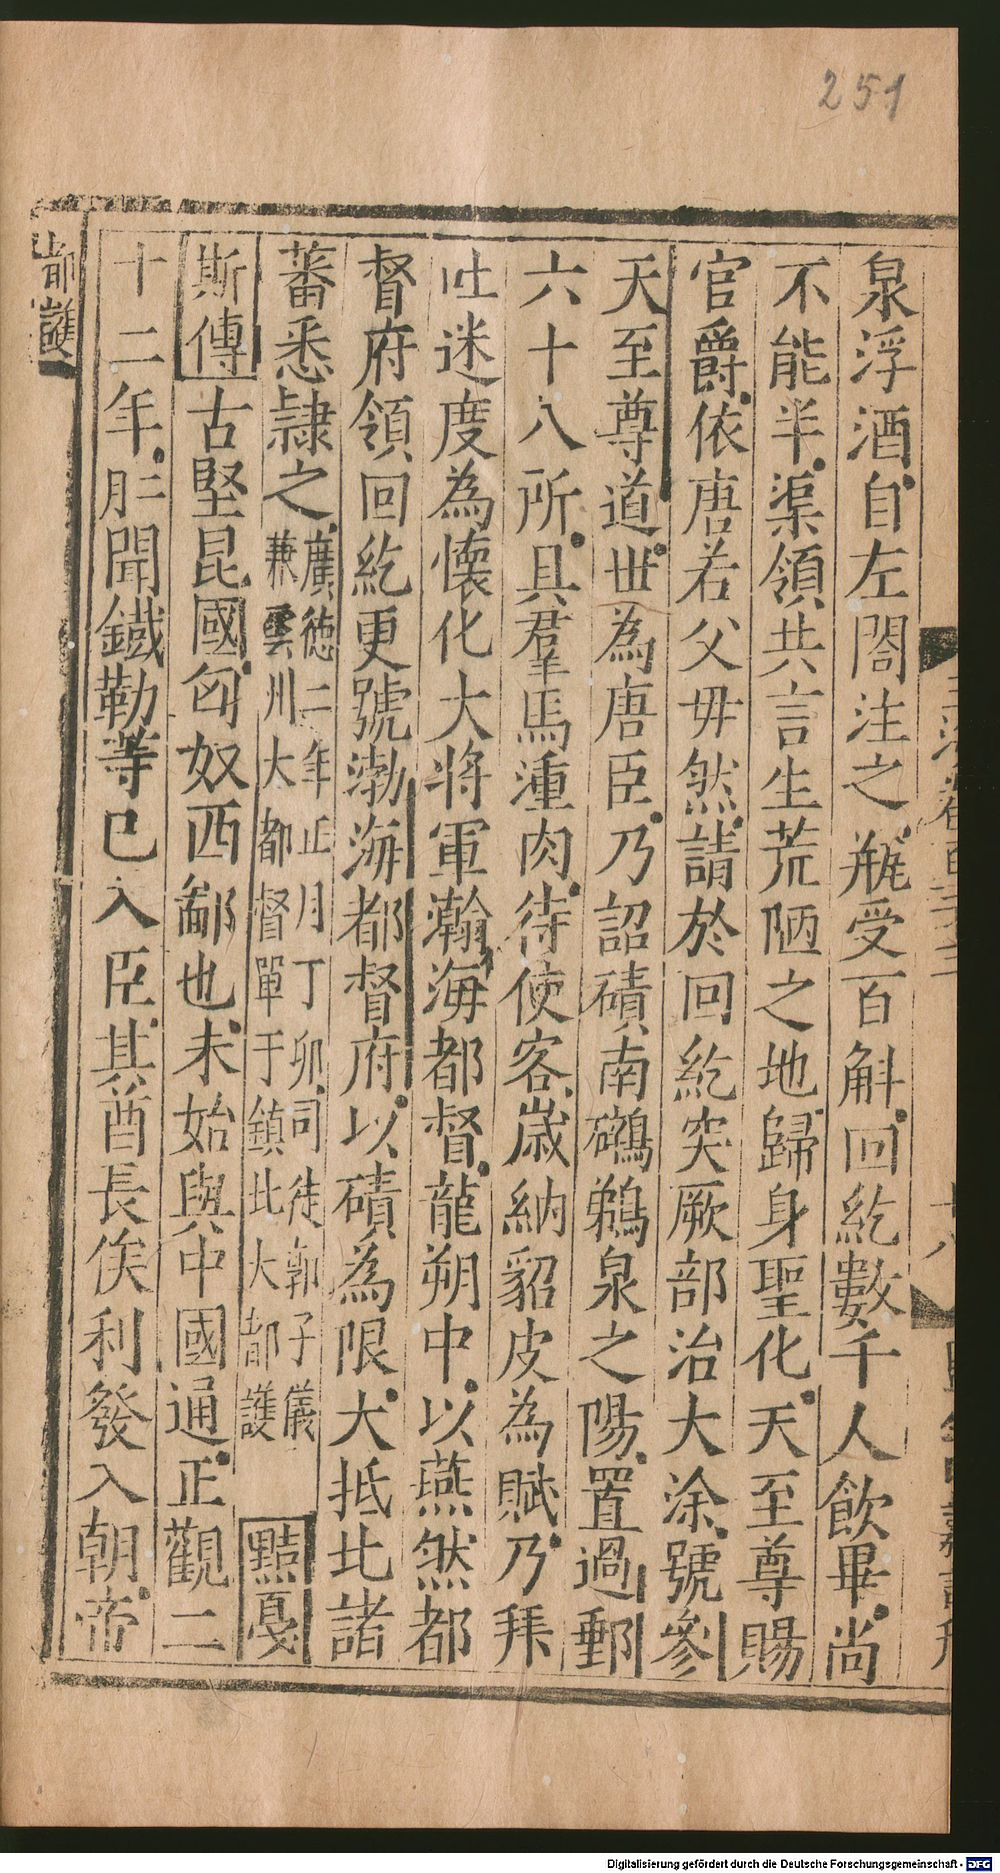 251
泉浮酒自左閤注之瓶受百斛回紇數千人飲畢尚
不能半渠領共言生荒陋之地歸身聖化天至尊賜
官爵依唐若父毋然請於回紇突厥部治大涂號參
天至尊道世為唐臣乃詔磧南鸊鵜泉之陽置過郵
六十八所具羣馬湩肉待使客歲納貂皮為賦乃拜
吐迷度為懷化大將軍瀚海都督龍朔中以燕然都
督府領回紇更號瀚海都督府以磧為限大抵北諸
蕃悉隷之
廣德二年正月丁卯司徒郭子儀
兼雲州大都督單于鎮北大都護
黠戛
斯傳古堅昆國匈奴西鄙也未始與中國通正觀二
十二年二月聞鐵勒等已入臣其酋長俟利發入朝帝
都護
十八
Digitalisierung gefördert durch die Deutsche Forschungsgemeinschaft - DFG